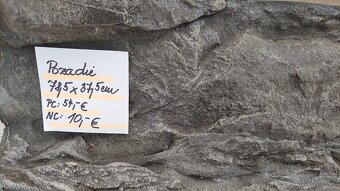 Pozadie
78,5 x 37,5 cm
PC: 54,-€
NC: 10,-€